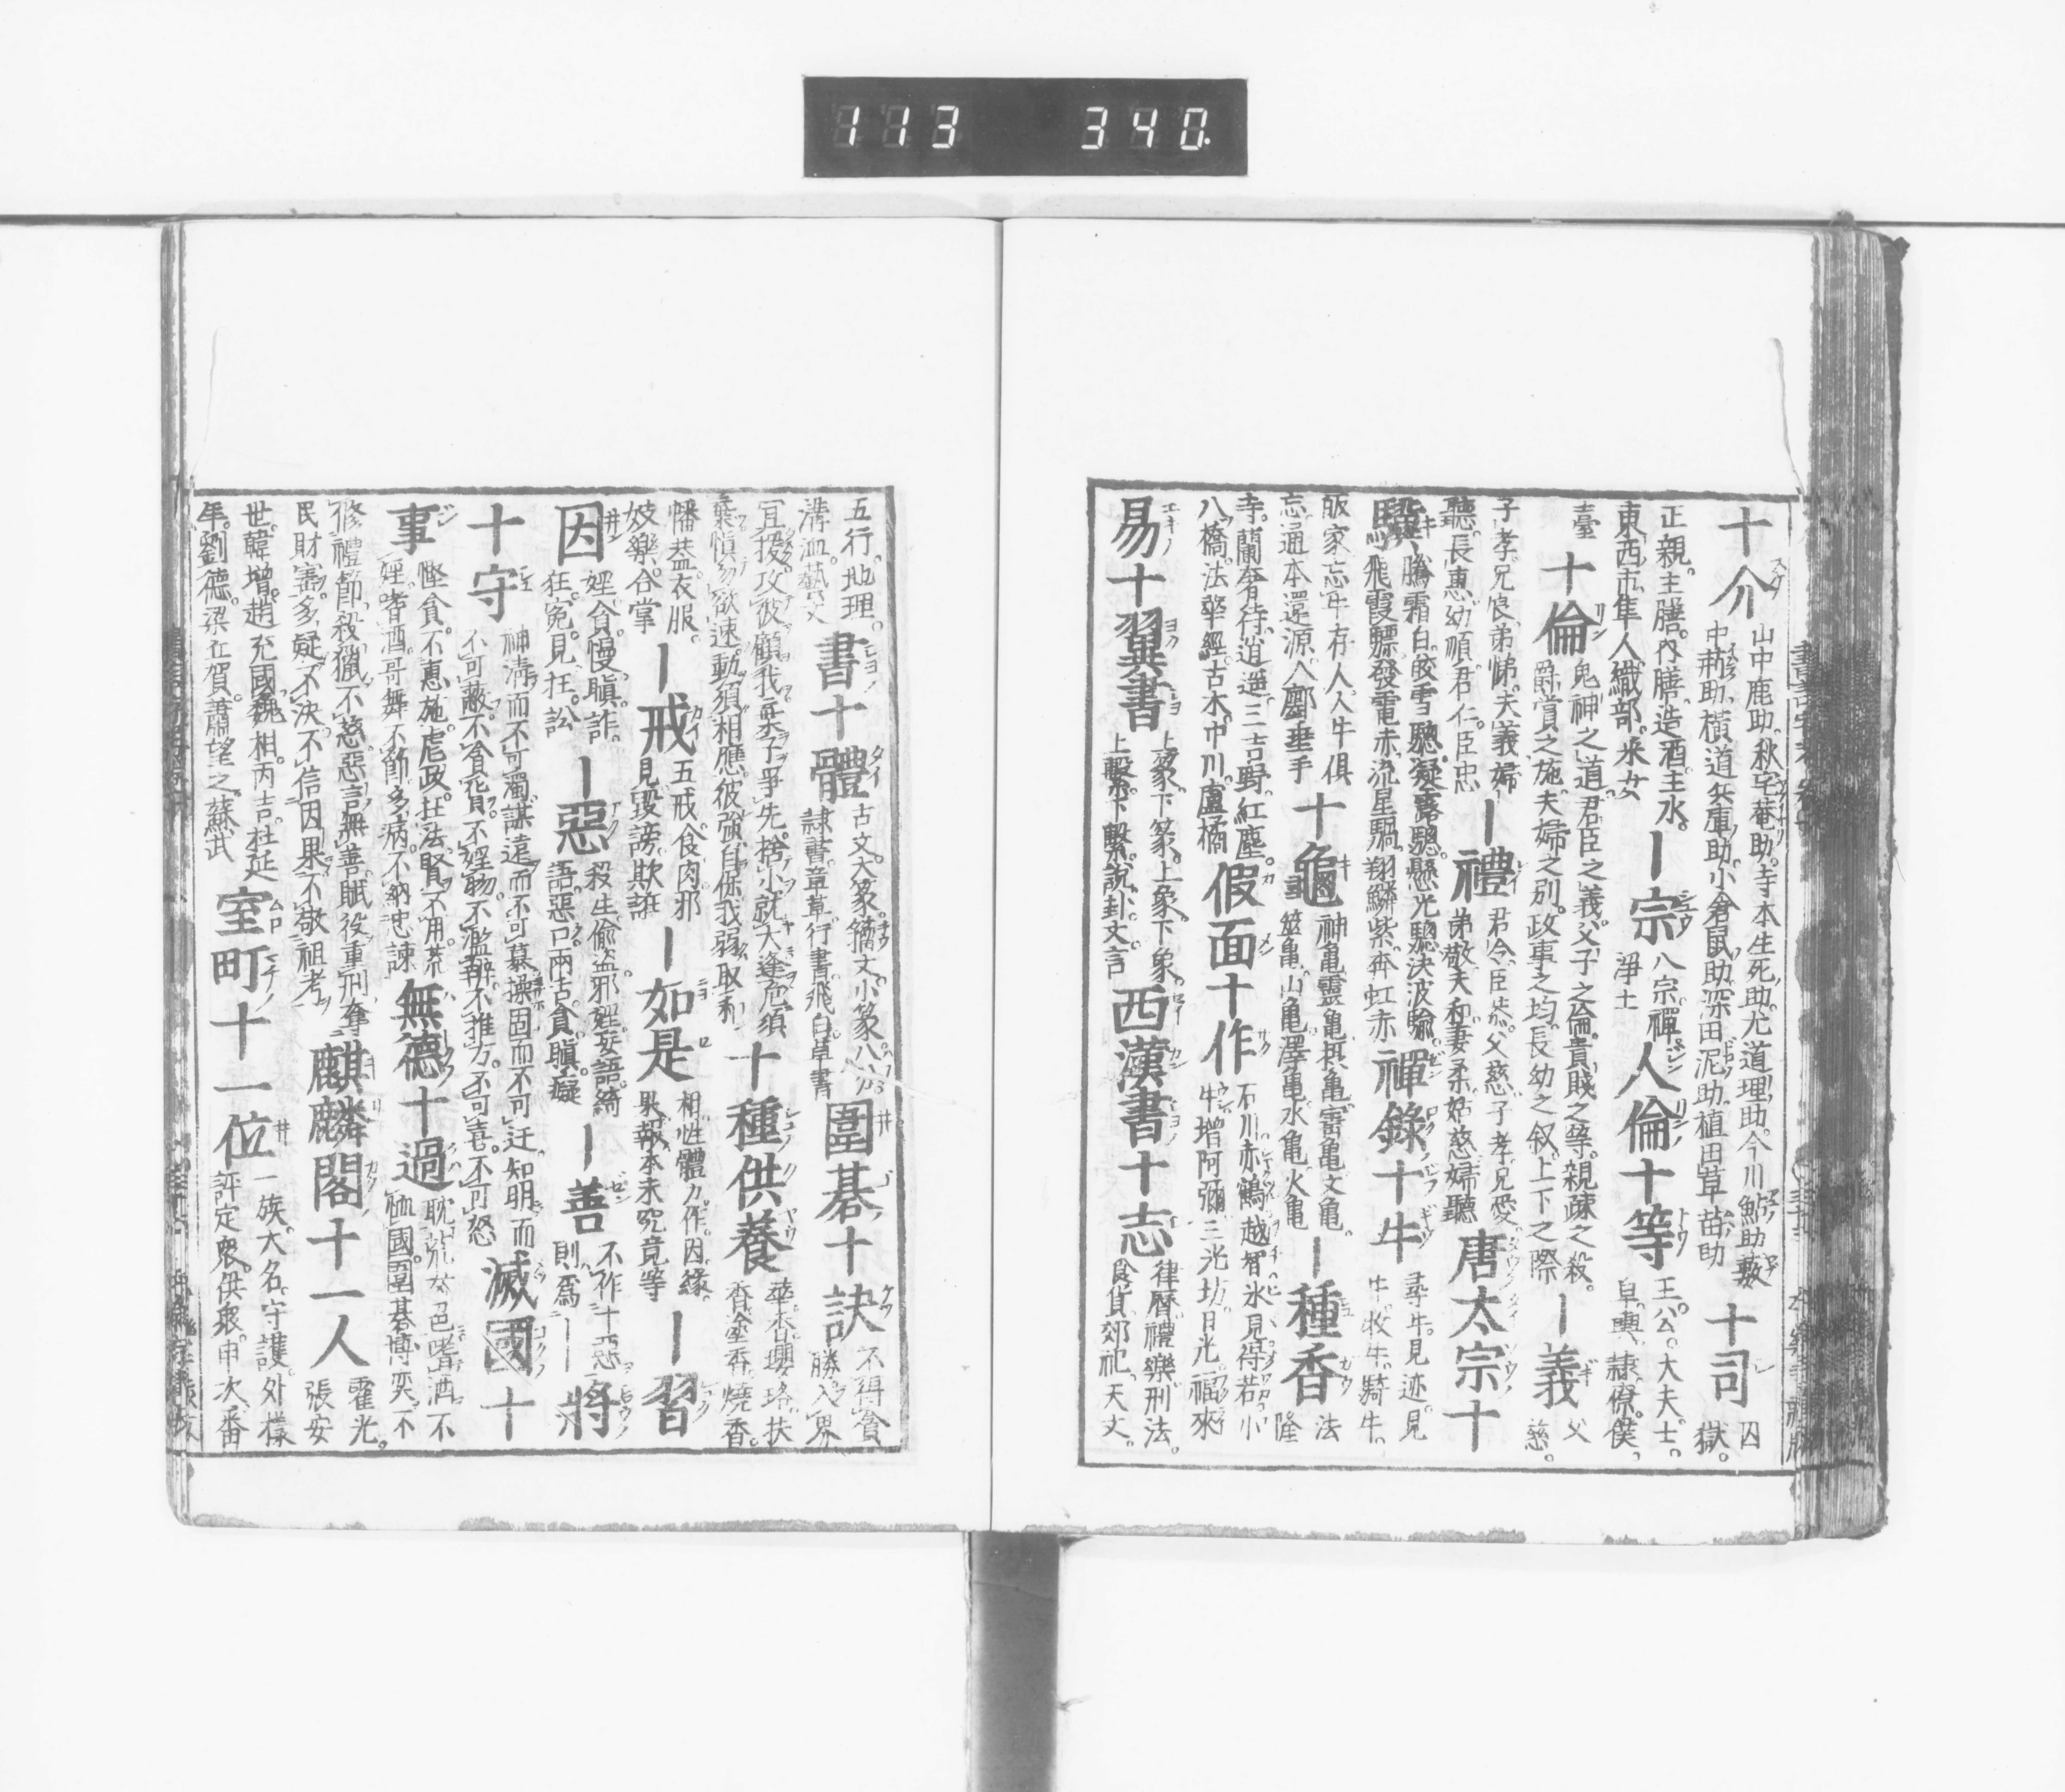 113 340
十介 山中鹿助。秋宅菴助。寺本生死助。尤道理助。今川鮎助。藪
中荊助。橫道兵庫助。小倉鼠助。深田泥助。植田草苗助
十司 囚獄。
正親。主膳。內膳。造酒。主水。
東西市。隼人。織部。采女
一宗 八宗。禪
淨土
人倫十等 王。公。大夫。士。
皁。輿。隷。僚。僕。
臺
十倫 鬼神之道。君臣之義。父子之倫。貴賤之等。親疎之殺。
爵賞之施。夫婦之別。政事之均。長幼之叙。上下之際
一義 父
慈。
子孝。兄良。弟悌。夫義。婦
聽。長惠。幼順。君仁。臣忠
一禮 君令。臣恭。父慈。子孝。兄愛。
弟敬。夫和。妻柔。姑慈。婦聽
唐太宗十
驥 騰霜白。皎雪驄。凝露驄。懸光驄。決波騟。
飛霞驃。發電赤。流星騧。翔鱗紫。奔虹赤
禪錄十牛 尋牛。見迹。見
牛。牧牛。騎牛。
皈家。忘牛存人。人牛俱
忘。返本還源。入鄽垂手
十龜 神龜。靈龜。攝龜。寶龜。文龜。
筮龜。山龜。澤龜。水龜。火龜
一種香 法
隆
寺。蘭奢待。逍遥。三吉野。紅塵。
八橋。法華經。古木。中川。盧橘
假面十作 石川。赤鶴。越智。氷見。得若。小
牛。增阿彌。三光坊。日光。福來
易十翼書 上彖。下彖。上象。下象。
上繫。下繫。說卦。文言
西漢書十志 律曆。禮樂。刑法。
食貨。郊祀。天文。
五行。地理。
溝洫。藝文
書十體 古文。大篆。籀文。小篆。八分。
隷書。章草。行書。飛白。草書
圍碁十訣 不得貪
勝。入界
宜緩。攻彼顧我。棄子爭先。捨小就大。逢危須
棄。愼勿欲速。動須相應。彼強自保。我弱取和
十種供養 華。香。瓔珞。抹
香。塗香。燒香。
幡葢。衣服。
妓樂。合掌
一戒 五戒。食肉。邪
見。毀謗。欺誑
一如是 相。性。體。力。作。因。緣。
果。報。本末究竟等
一習
因 婬。貪。慢。瞋。詐。
狂。寃。見。枉。訟
一惡 殺生。偷盜。邪婬。妄語。綺
語。惡口。兩舌。貪。瞋。癡
一善 不作十惡
則爲一一
將
十守 神清而不可濁。謀遠而不可慕。操固而不可迁。知明而
不可蔽。不貪貨。不婬物。不濫辭。不推方。不可喜。不可怒
滅國十
事 慳貪。不惠施。虐政。枉法。賢不用。荒
婬。嗜酒。哥舞。不節。多病。不納忠諫
無德十過 耽荒女色。嗜酒。不
恤國。圍碁博奕。不
修禮節。殺獵。不慈。惡言。無善。賦役重。刑奪
民財。害多。疑不決。不信因果。不敬祖考
麒麟閣十一人 霍光。
張安
世。韓增。趙充國。魏相。丙吉。杜延
年。劉德。梁丘賀。蕭望之。蘇武
室町十一位 一族。大名。守護。外樣
評定衆。供衆。申次。番